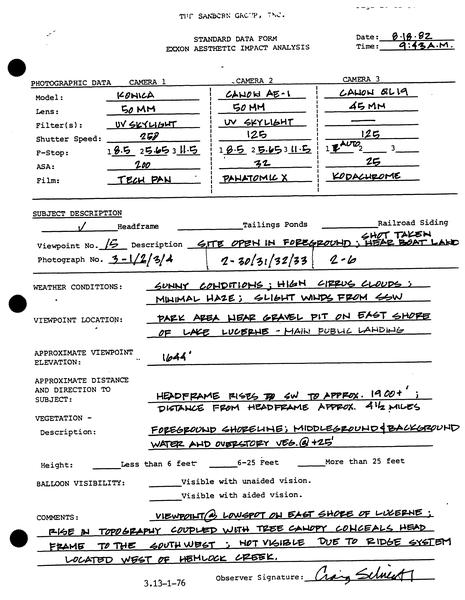 THE SANBORN GROUP, INC.
STANDARD DATA FORM
EXXON AESTHETIC IMPACT ANALYSIS
Date: 8-18-82
Time: 9:43 A.M.
PHOTOGRAPHIC DATA CAMERA 1 CAMERA 2 CAMERA 3
Model: KONICA CANON AE-1 CANON QL19
Lens: 50 MM 50 MM 45 MM
Filter(s): UV SKYLIGHT UV SKYLIGHT —
Shutter Speed: 250 125 125
F-Stop: 1 8.5 2 5.65 3 11.5 1 8.5 2 5.65 3 11.5 1 AUTO 2 3
ASA: 200 32 25
Film: TECH PAN PANATOMIC X KODACHROME
SUBJECT DESCRIPTION
✓ Headframe Tailings Ponds Railroad Siding
Viewpoint No. 15 Description SITE OPEN IN FOREGROUND; SHOT TAKEN NEAR BOAT LAND
Photograph No. 3-1/2/3/4 2-30/31/32/33 2-6
WEATHER CONDITIONS: SUNNY CONDITIONS; HIGH CIRRUS CLOUDS;
MINIMAL HAZE; SLIGHT WINDS FROM SSW
VIEWPOINT LOCATION: PARK AREA NEAR GRAVEL PIT ON EAST SHORE
OF LAKE LUCERNE - MAIN PUBLIC LANDING
APPROXIMATE VIEWPOINT
ELEVATION: 1644'
APPROXIMATE DISTANCE
AND DIRECTION TO
SUBJECT: HEADFRAME RISES TO SW TO APPROX. 1900+';
DISTANCE FROM HEADFRAME APPROX. 4½ MILES
VEGETATION -
Description: FOREGROUND SHORELINE; MIDDLEGROUND & BACKGROUND
WATER AND OVERSTORY VEG. @ +25'
Height: Less than 6 feet 6-25 Feet More than 25 feet
BALLOON VISIBILITY: Visible with unaided vision.
Visible with aided vision.
COMMENTS: VIEWPOINT @ LOWSPOT ON EAST SHORE OF LUCERNE;
RISE IN TOPOGRAPHY COUPLED WITH TREE CANOPY CONCEALS HEAD
FRAME TO THE SOUTHWEST; NOT VISIBLE DUE TO RIDGE SYSTEM
LOCATED WEST OF HEMLOCK CREEK.
3.13-1-76
Observer Signature: Craig